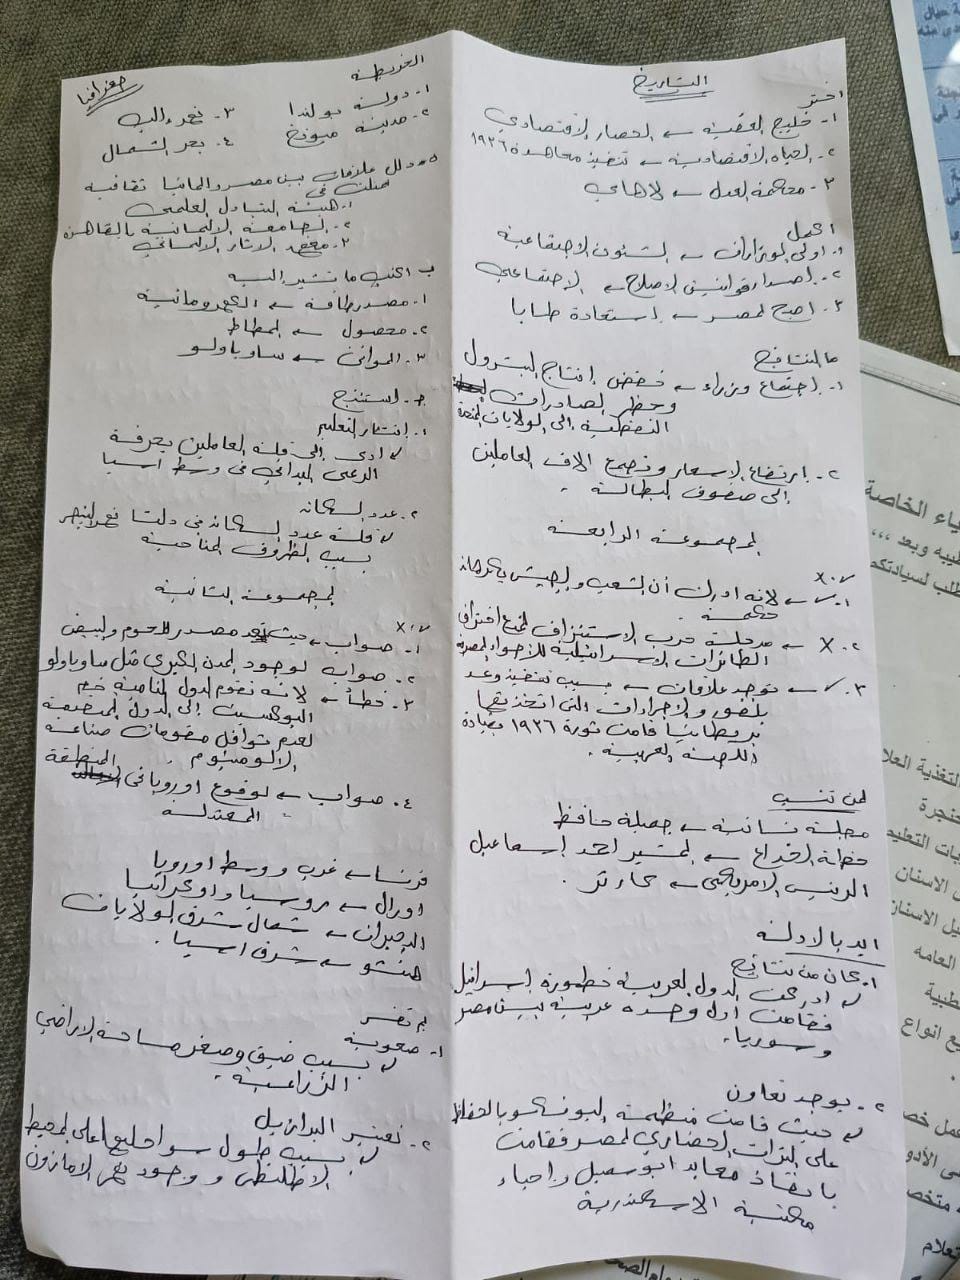 التاريخ
اختر
١- خليج العقبة ← الحصار الاقتصادي
٢- الحياه الاقتصادية ← تنفيذ معاهدة ١٩٣٦
٣- محكمة العدل ← لاهاي
اكمل
١- اولى الوزارات ← الشئون الاجتماعية
٢- اصدار قوانين الاصلاح ← الاجتماعي
٣- اصبح لمصر ← استعادة طابا
ما النتائج
١- اجتماع وزراء ← خفض إنتاج البترول
وحظر الصادرات
النفطية إلى الولايات المتحدة
٢- ارتفاع الاسعار وتصبح الاف العاملين
إلى صفوف البطالة -
المجموعة الرابعة
✓ ٠ X
١- ✓ ← لانه ادرك أن الشعب والجيش
٢- X ← مرحلة حرب الاستنزاف لمنع اختراق
الطائرات الاسرائيلية للأجواء المصرية
٣- ✓ ← توجد علاقات ← بسبب تنفيذ وعد
بلفور والاجراءات التى اتخذتها
بريطانيا قامت ثورة ١٩٣٦ بقيادة
اللجنة العربية .
لمن تنسب
مجلة نسائية ← جميلة حافظ
خطة الخداع ← المشير احمد إسماعيل
الرئيس الامريكى ← كارتر .
ايد بالادلة
١- كان من نتائج
ادركت الدول العربية خطورة إسرائيل
فقامت اول وحده عربية بين مصر
وسوريا.
٢- يوجد تعاون
حيث قامت منظمة اليونسكو بالحفاظ
على التراث الحضاري لمصر فقامت
بانقاذ معابد ابو سمبل واحياء
مكتبة الاسكندرية
جغرافيا
الخريطة
١- دولة بولندا ٣- نهر الب
٢- مدينة ميونخ ٤- بحر الشمال
دلل علاقات بين مصر والمانيا ثقافية
تمثلت في
١- هيئة التبادل العلمي
٢- الجامعة الالمانية بالقاهرة
٣- معهد الاثار الالماني
ب اكتب ما تشير اليه
١- مصدر طاقة ← الكهرومائية
٢- محصول ← المطاط
٣- الموانئ ← ساوباولو
ج- استنتج
١- إنتشار التعليم
ادى إلى قلة العاملين بحرفة
الرعى البدائي فى وسط اسيا
٢- عدد السكان
قلة عدد السكان في دلتا نهر
بسبب الظروف المناخية
المجموعة الثانية
✓ ٠ X
١- صواب ← حيث تعد مصدر للحوم والبيض
٢- صواب لوجود المدن الكبرى مثل ساوباولو
٣- خطأ ← لانه تقوم الدول النامية خام
البوكسيت إلى الدول المصنعة
لعدم توافر مقومات صناعة
الالومنيوم .
٤- صواب ← لوقوع اوروبا في المنطقة
المعتدلة -
فرنسا ← غرب ووسط اوروبا
اورال ← روسيا واوكرانيا
البحيرات ← شمال شرق الولايات
هنشو ← شرق اسيا .
بم تفسر
١- صعوبة
بسبب ضيق وصغر مساحة الاراضي
الزراعية .
٢- تعتبر البرازيل
بسبب طول سواحلها على المحيط
الاطلنطى ووجود نهر الامازون